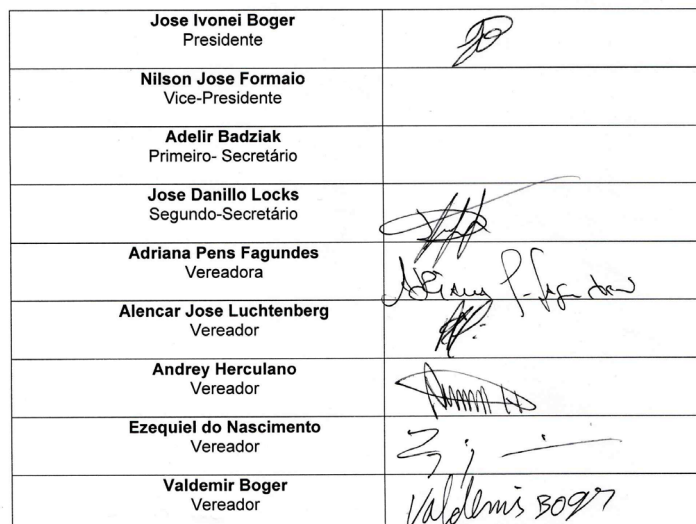 Jose Ivonei Boger
Presidente
Nilson Jose Formaio
Vice-Presidente
Adelir Badziak
Primeiro- Secretário
Jose Danillo Locks
Segundo-Secretário
Adriana Pens Fagundes
Vereadora
Adriana P. Fagundes
Alencar Jose Luchtenberg
Vereador
Andrey Herculano
Vereador
Ezequiel do Nascimento
Vereador
Valdemir Boger
Vereador
Valdemir BOGER